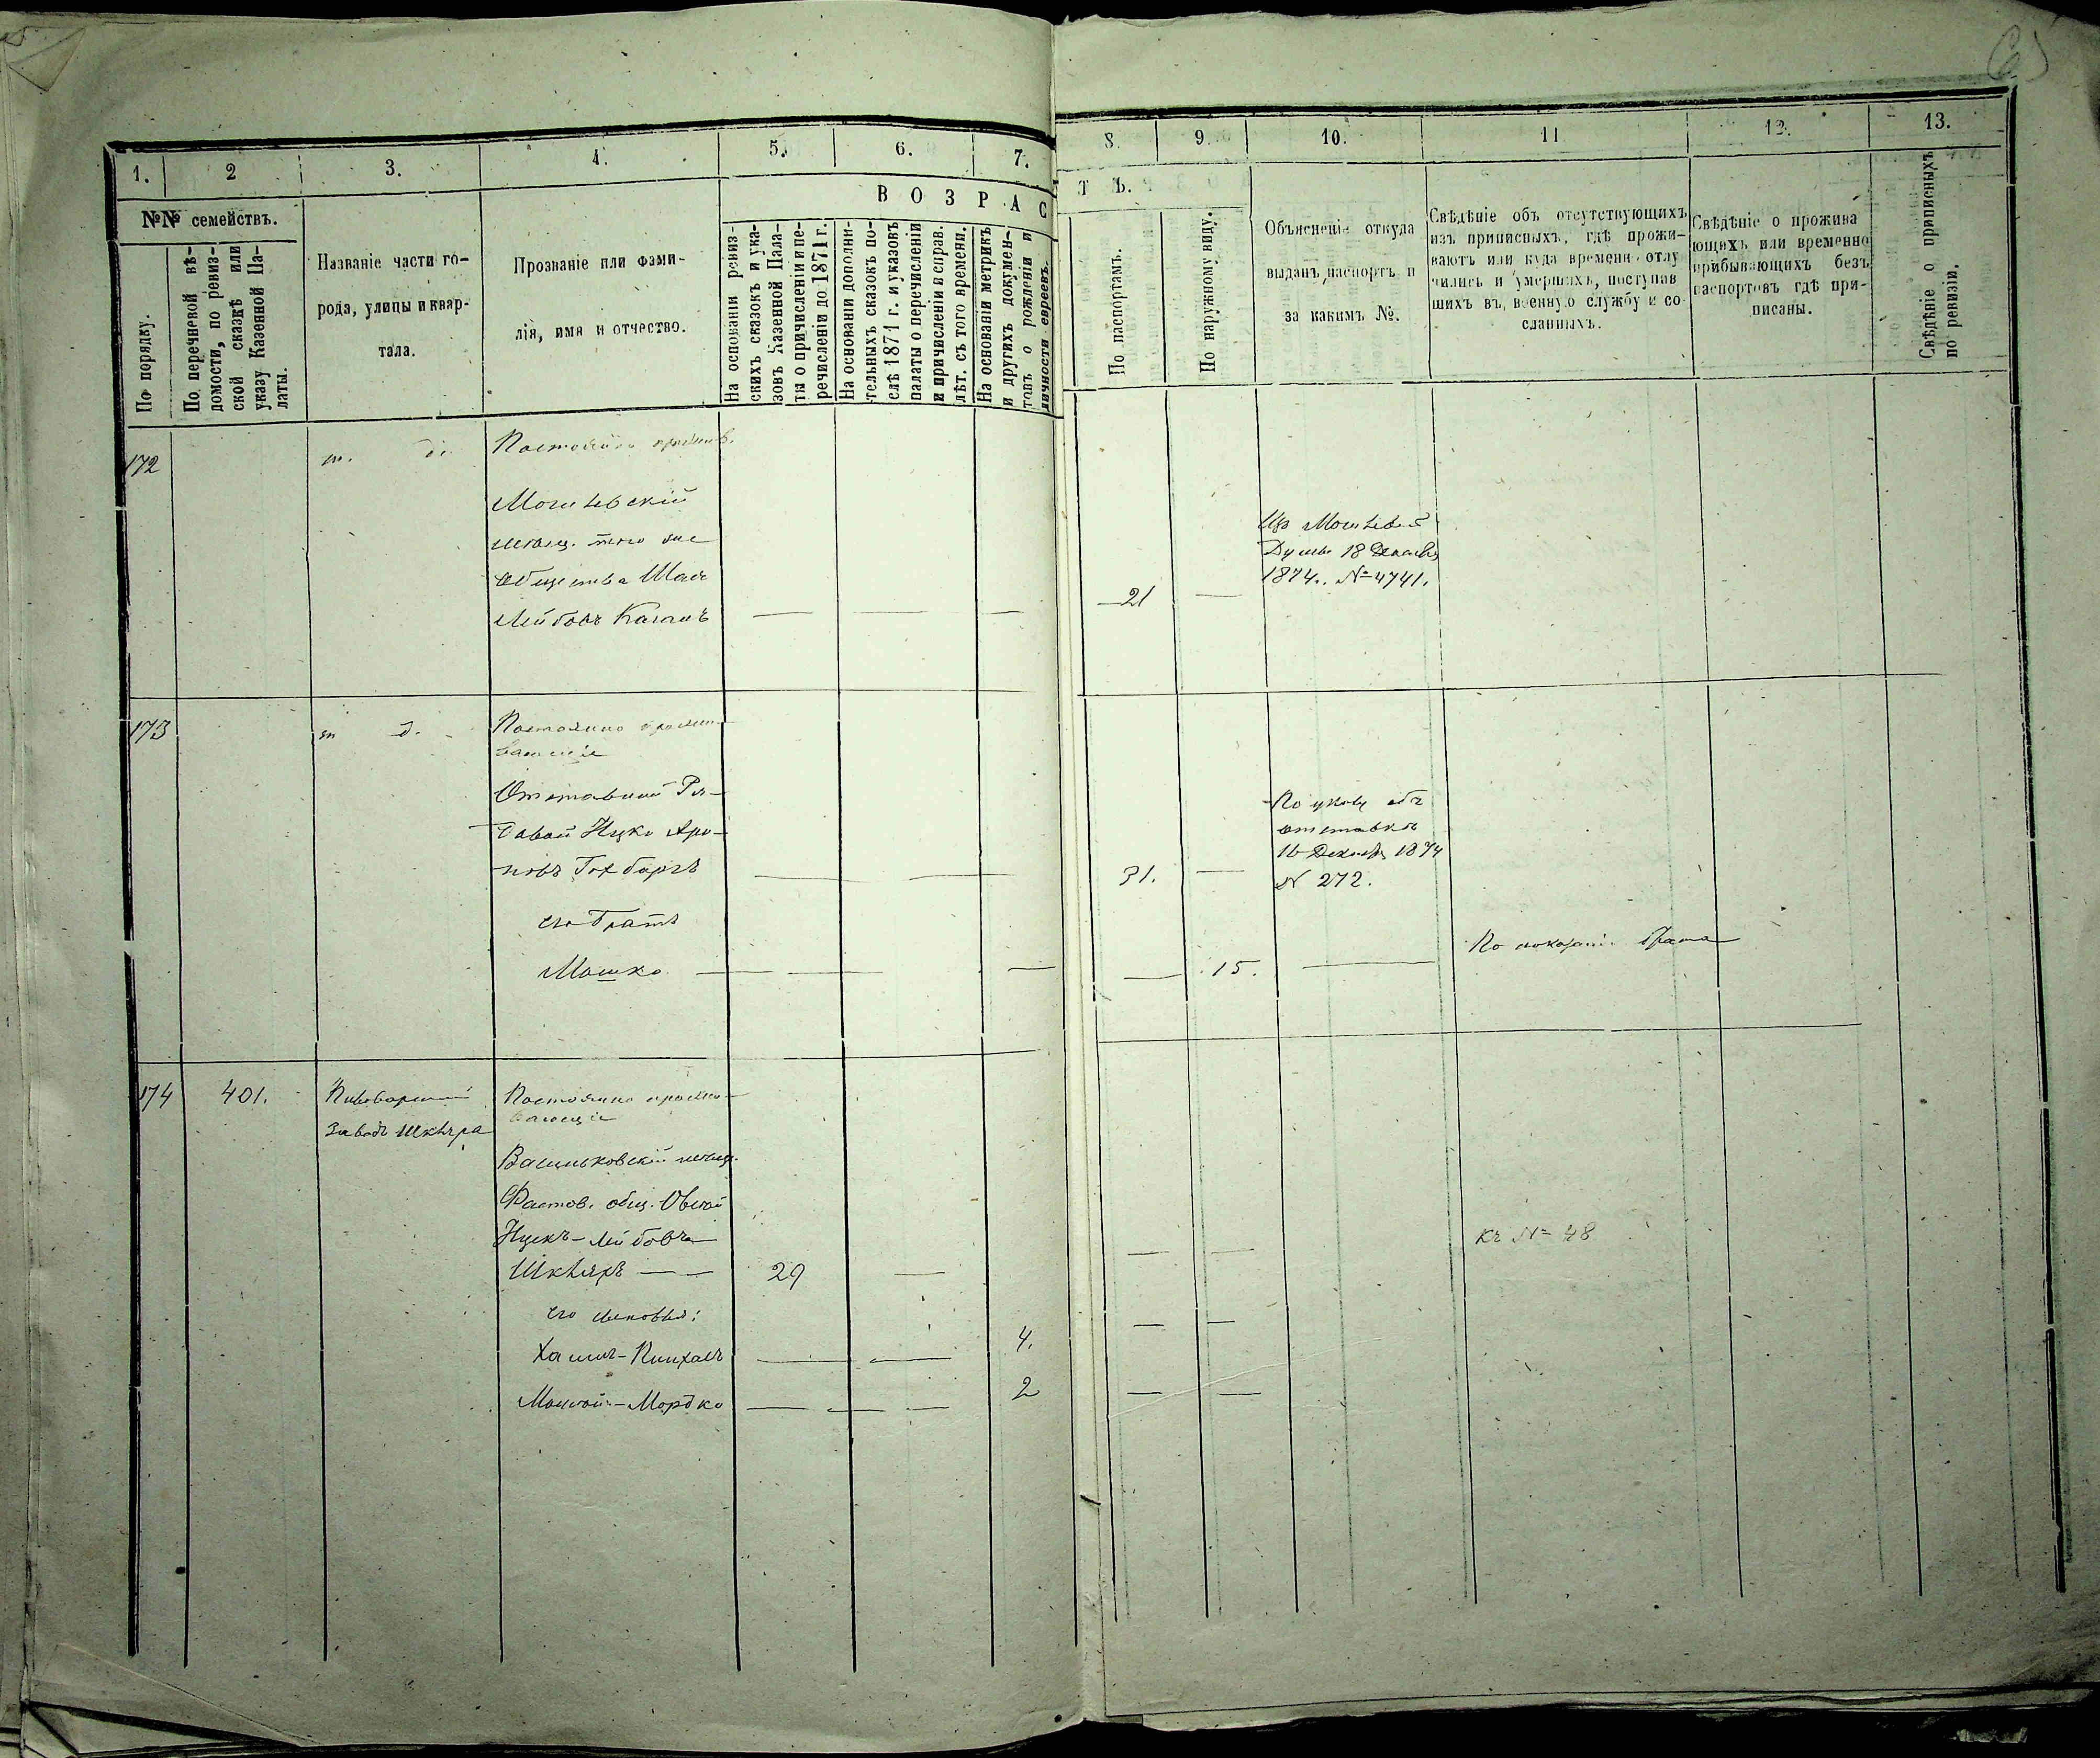 1.
2
3.
4.
5.
6.
7.
8.
9.
10.
11
12.
13.
№№ семействъ.
По порядку.
По перечневой вѣ-
домости, по ревиз-
ской сказкѣ или
указу Казенной Па-
латы.
Названіе части го-
рода, улицы и квар-
тала.
Прозваніе или фами-
лія, имя и отчество.
ВОЗРАС
На основаніи ревиз-
скихъ сказокъ и ука-
зовъ Казенной Пала-
ты о причисленіи и пе-
речисленіи до 1871 г.
На основаніи дополни-
тельныхъ сказокъ по-
слѣ 1871 г. и указовъ
палаты о перечисленіи
и причисленіи и справ.
лѣт. съ того времени.
На основаніи метрикъ
и другихъ докумен-
товъ о рожденіи и
личности евреевъ.
ТЪ.
По паспортамъ.
По наружному виду.
Объясненіе откуда
выданъ паспортъ и
за какимъ №.
Свѣдѣніе объ отсутствующихъ
изъ приписныхъ, гдѣ прожи-
ваютъ или куда временно отлу
чились и умершихъ, поступав
шихъ въ военную службу и со
сланныхъ.
Свѣдѣніе о прожива
ющихъ или временно
прибывающихъ безъ
паспортовъ гдѣ при-
писаны.
Свѣдѣніе о приписныхъ
по ревизіи.
172
т. д.
Постоянно прожив.
Могилевскій
мѣщ. того же
общества
Лейбовъ Каганъ
— — —
21 —
Изъ Могилев.
Думы 18 Декабря
1874. № 4741.
173
т д.
Постоянно прожи-
вающіе
Отставной Ря-
довой Ицко Аро-
новъ Гохбаргъ
— — —
31. —
По указу объ
отставкѣ
16 Декабр 1874
№ 272.
его братъ
Мошко — — —
— 15. —
По показанію брата
174
401.
Пивоваренный
заводъ Шкляра
Постоянно прожи-
вающіе
Васильковскій мѣщ.
Фастов. общ. Овсей
Ицекъ-Лейбовъ
Шкляръ — —
29 —
— —
къ № 48
его сыновья:
Хаимъ-Пинхасъ — —
4.
— —
Мойсей-Мордко — — —
2
— —